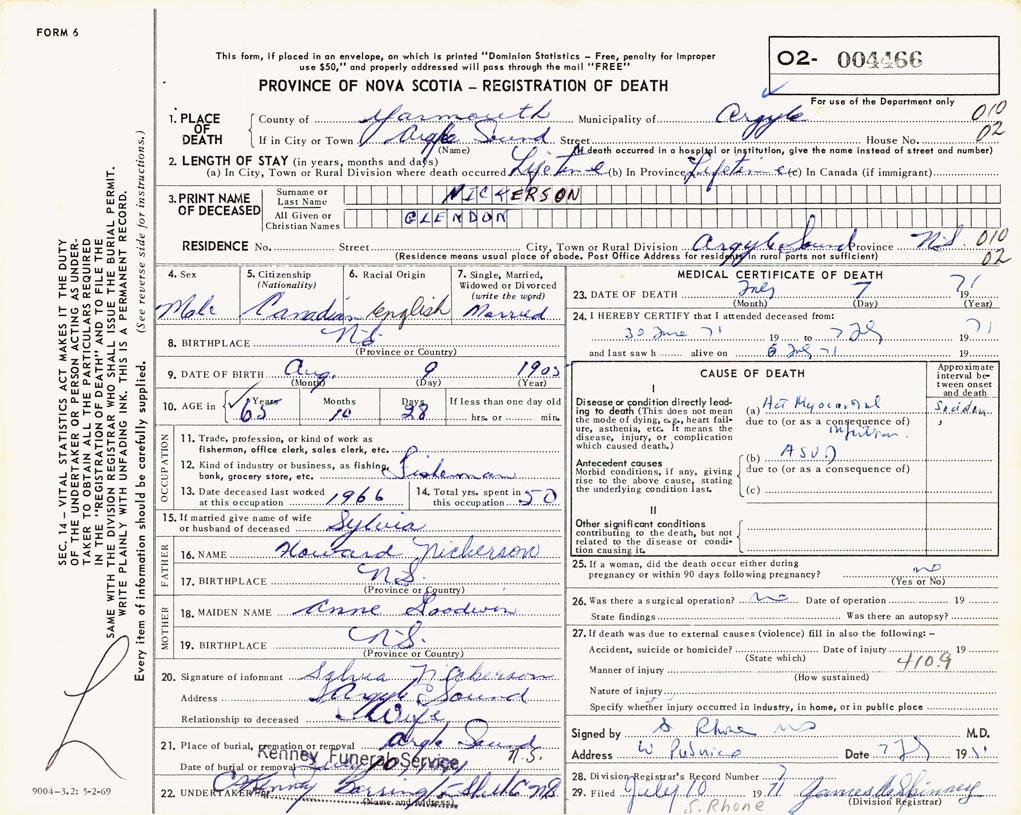 FORM 6
This form, if placed in an envelope, on which is printed "Dominion Statistics – Free, penalty for improper
use $50," and properly addressed will pass through the mail "FREE"
02- 004466
PROVINCE OF NOVA SCOTIA – REGISTRATION OF DEATH
For use of the Department only
1. PLACE OF DEATH
County of Yarmouth Municipality of Argyle 010
If in City or Town Argyle Sound Street House No. 02
(Name) (If death occurred in a hospital or institution, give the name instead of street and number)
2. LENGTH OF STAY (in years, months and days)
(a) In City, Town or Rural Division where death occurred Lifetime (b) In Province Lifetime (c) In Canada (if immigrant)
3. PRINT NAME OF DECEASED
Surname or Last Name NICKERSON
All Given or Christian Names GLENDON
RESIDENCE No. Street City, Town or Rural Division Argyle Sound Province N.S. 010
(Residence means usual place of abode. Post Office Address for residents in rural parts not sufficient) 02
4. Sex
Male
5. Citizenship
(Nationality)
Canadian
6. Racial Origin
English
7. Single, Married,
Widowed or Divorced
(write the word)
Married
8. BIRTHPLACE N.S.
(Province or Country)
9. DATE OF BIRTH Aug. 9 1905
(Month) (Day) (Year)
10. AGE in Years Months Days If less than one day old
65 10 28 hrs. or min.
OCCUPATION
11. Trade, profession, or kind of work as
fisherman, office clerk, sales clerk, etc.
12. Kind of industry or business, as fishing,
bank, grocery store, etc. Fisherman
13. Date deceased last worked
at this occupation 1966
14. Total yrs. spent in
this occupation 50
15. If married give name of wife
or husband of deceased Sylvia
FATHER
16. NAME Howard Nickerson
17. BIRTHPLACE N.S.
(Province or Country)
MOTHER
18. MAIDEN NAME Anne Goodwin
19. BIRTHPLACE N.S.
(Province or Country)
20. Signature of informant Sylvia Nickerson
Address Argyle Sound
Relationship to deceased Wife
21. Place of burial, cremation or removal Argyle Sound N.S.
Kenney Funeral Service
Date of burial or removal July 10
22. UNDERTAKER Kenney Barrington Shel Co NS
(Name and address)
MEDICAL CERTIFICATE OF DEATH
23. DATE OF DEATH July 7 1971
(Month) (Day) (Year)
24. I HEREBY CERTIFY that I attended deceased from:
30 June 71 19 to 7 Jly 1971
and last saw h alive on 6 July 71 19
CAUSE OF DEATH
Approximate
interval be-
tween onset
and death
I
Disease or condition directly lead-
ing to death (This does not mean
the mode of dying, e.g., heart fail-
ure, asthenia, etc. It means the
disease, injury, or complication
which caused death.)
(a) Act Myocardial Sudden
due to (or as a consequence of)
infarction.
Antecedent causes
Morbid conditions, if any, giving
rise to the above cause, stating
the underlying condition last.
(b) ASVD
due to (or as a consequence of)
(c)
II
Other significant conditions
contributing to the death, but not
related to the disease or condi-
tion causing it.
25. If a woman, did the death occur either during
pregnancy or within 90 days following pregnancy? no
(Yes or No)
26. Was there a surgical operation? no Date of operation 19
State findings Was there an autopsy?
27. If death was due to external causes (violence) fill in also the following: –
Accident, suicide or homicide? Date of injury 19
(State which) 410.9
Manner of injury
(How sustained)
Nature of injury
Specify whether injury occurred in industry, in home, or in public place
Signed by S Rhone MD M.D.
Address W Pubnico Date 7 Jly 1971
28. Division Registrar's Record Number 7
29. Filed July 10 1971 James A Spinney
(Division Registrar)
S. Rhone
SEC. 14 – VITAL STATISTICS ACT MAKES IT THE DUTY
OF THE UNDERTAKER OR PERSON ACTING AS UNDER-
TAKER TO OBTAIN ALL THE PARTICULARS REQUIRED
IN THE "REGISTRATION OF DEATH" AND TO FILE THE
SAME WITH THE DIVISION REGISTRAR WHO SHALL ISSUE THE BURIAL PERMIT.
WRITE PLAINLY WITH UNFADING INK. THIS IS A PERMANENT RECORD.
Every item of information should be carefully supplied. (See reverse side for instructions.)
9004-3.2: 5-2-69